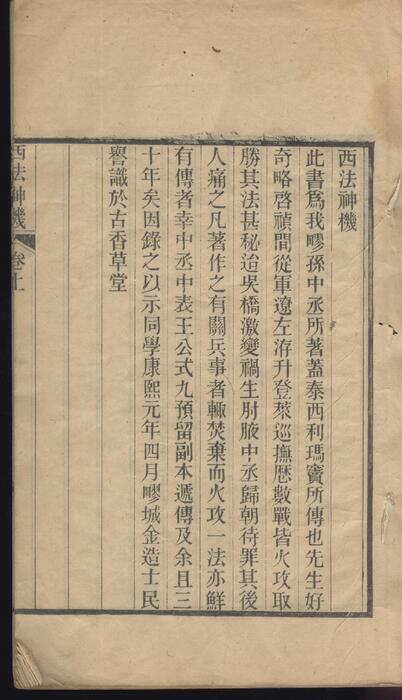 西法神機
此書爲我疁孫中丞所著蓋泰西利瑪竇所傳也先生好
奇略啓禎間從軍遼左洊升登萊巡撫歷數戰皆火攻取
勝其法甚秘迨吳橋激變禍生肘腋中丞歸朝待罪其後
人痛之凡著作之有關兵事者輙焚棄而火攻一法亦鮮
有傳者幸中丞中表王公式九預留副本遞傳及余且三
十年矣因錄之以示同學康熙元年四月疁城金造士民
譽識於古香草堂
西法神機 卷上